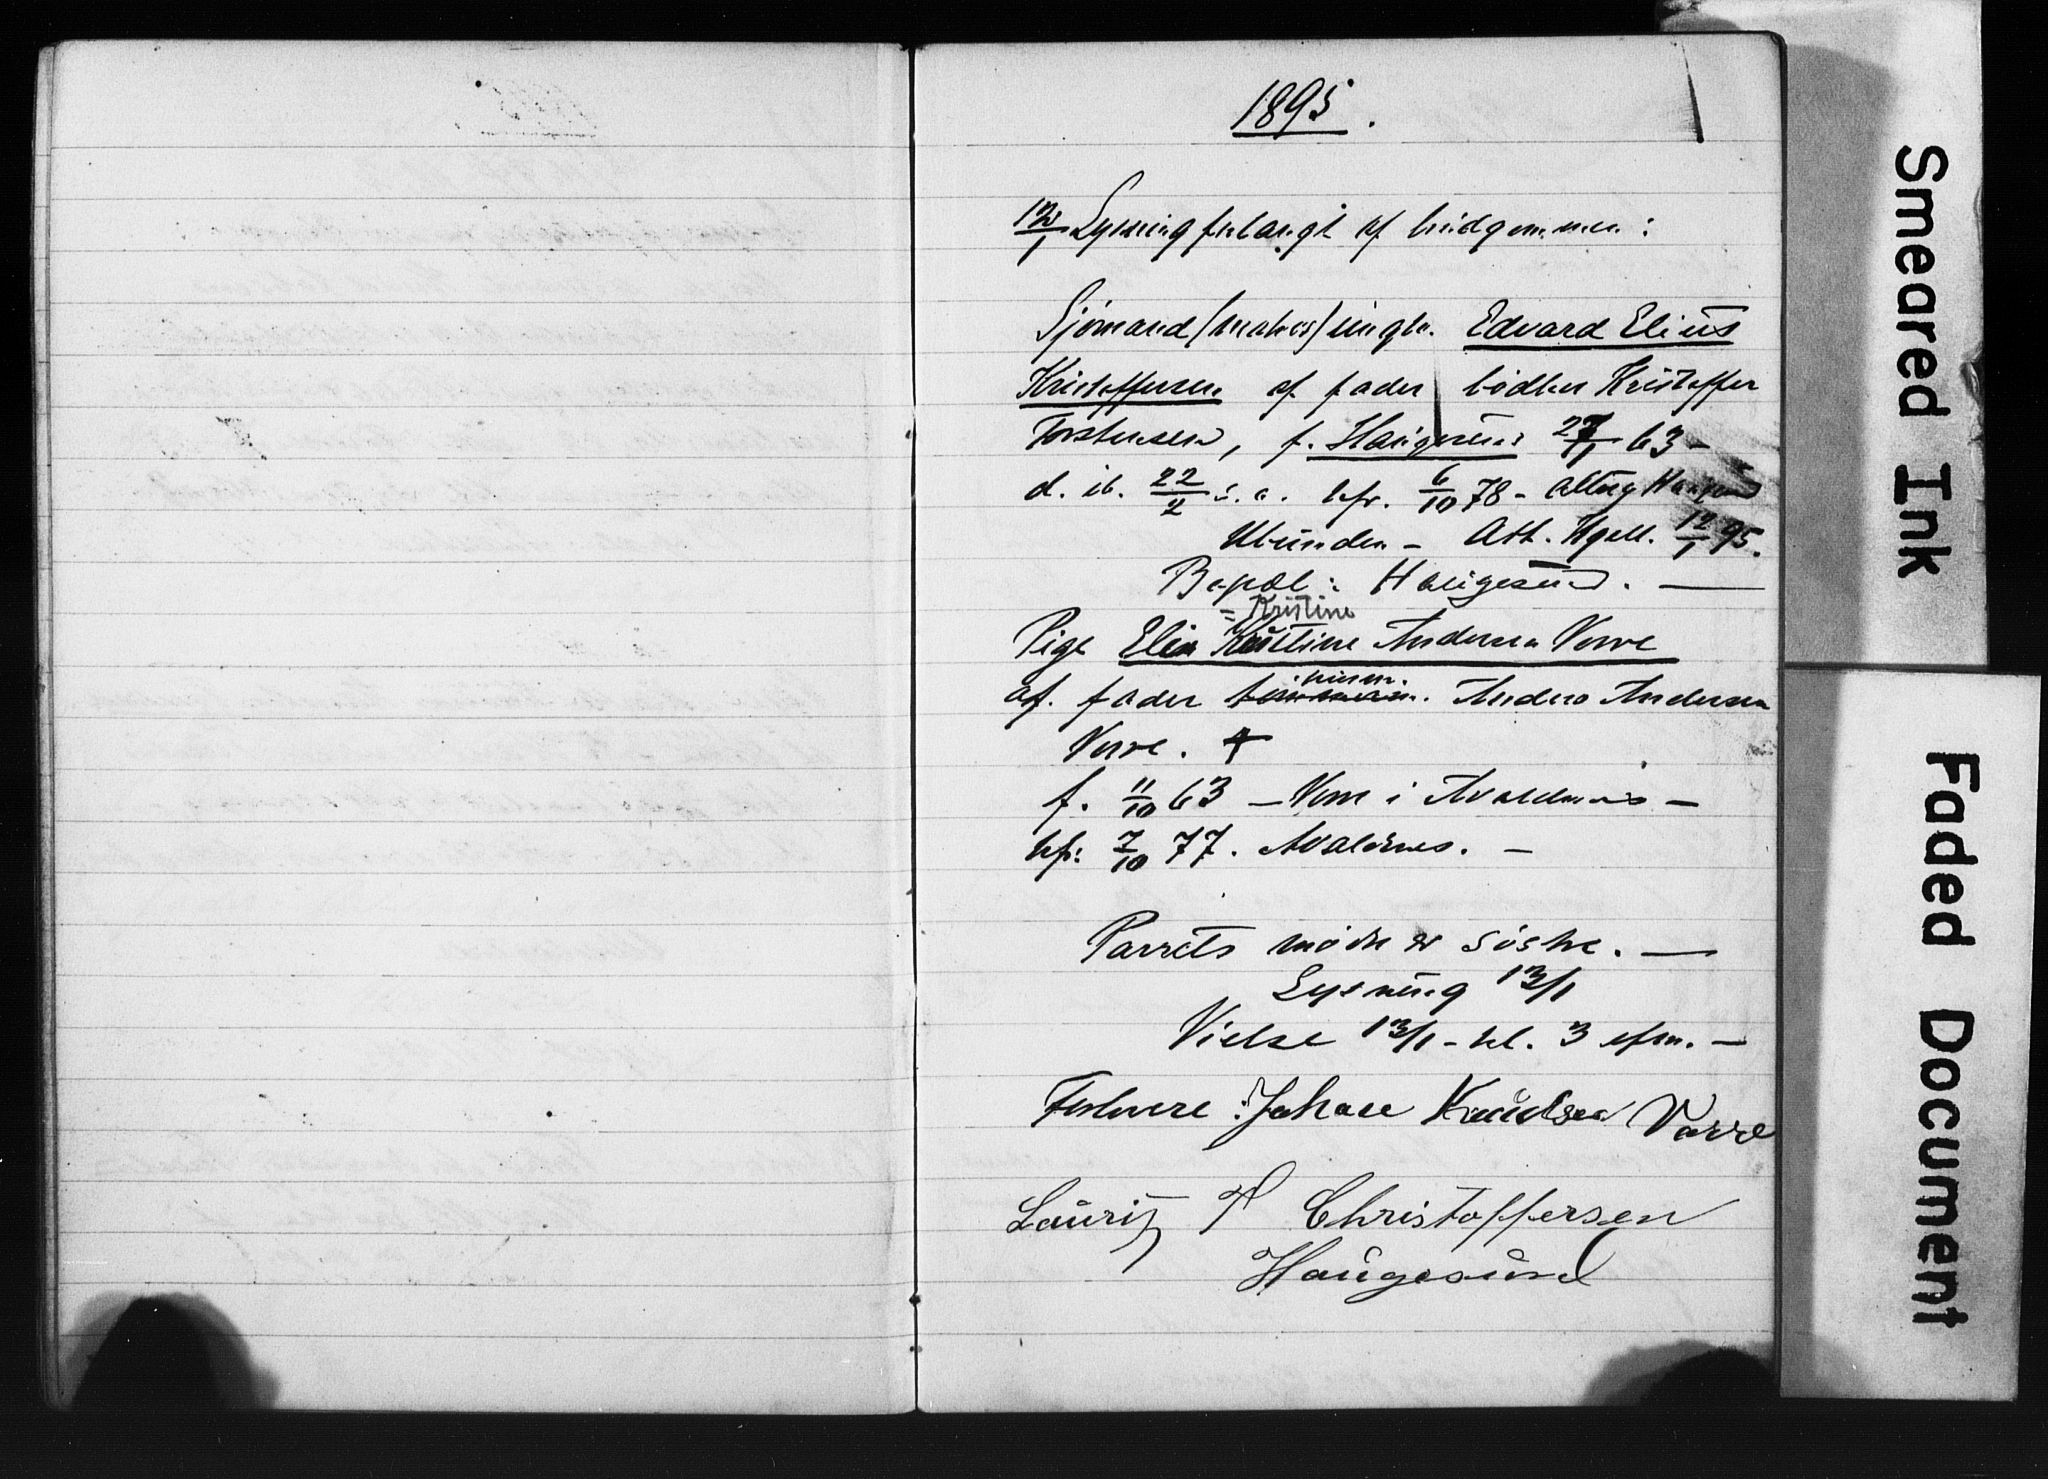 1895.
12/1 Lysning forlangt af brudgommen:
Sjømand (matros) ungk. Edvard Elius
Kristoffersen af fader bødker Kristoffer
Torstensen, f. Haugesund 27/1 63 –
d. ib. 22/2 s. a. kfr. 6/10 78 – Attest Haugesund
Ubunden – Att. Kgell. 12/1 95.
Bopæl: Haugesund. —
= Kristine
Pige Elen Kristine Andersen Vorre
af. fader husm. Anders Andersen
Vorre.
f. 11/10 63 – Vorre i Avaldsnes –
kfr: 7/10 77. Avaldsnes. –
Parrets mødre er søstre. —
Lysning 13/1
Vielse 13/1 – kl. 3 efm. –
Forlovere: Johan Knudsen Vorre
Lauritz T Christoffersen
Haugesund
Smeared Ink
Faded Document